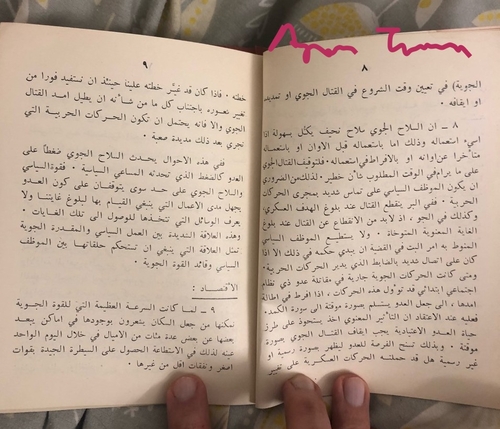 Agon Tram
٨
الجوية) في تعيين وقت الشروع في القتال الجوي او تمديد
او ايقافه .
٨ – ان السلاح الجوي سلاح نحيف يكل بسهولة اذا
اسيء استعماله وذلك اما باستعماله قبل الاوان او باستعماله
متأخرا عن اوانه او بالافراط في استعماله . فلتوقيف القتال الجوي
على ما يرام في الوقت المطلوب شأن خطير . لذلك من الضروري
ان يكون الموظف السياسي على تماس شديد بمجرى الحركات
الحربية . ففي البر ينقطع القتال عند بلوغ الهدف العسكري
وكذلك في الجو ، اذ لابد من الانقطاع عن القتال عند بلوغ
الغاية المعنوية المتوخاة . ولا يستطيع الموظف السياسي
المنوط به امر البت في القضية ان يبدي حكمه في ذلك الا اذا
كان على اتصال شديد بالضابط الذي يدير الحركات الحربية .
ومتى كانت الحركات الجوية جارية في مقاتلة عدو ذي نظام
اجتماعي ابتدائي قد تؤول هذه الحركات ، اذا افرط في اطالة
امدها ، الى جعل العدو يستلم بصورة موقتة الى سورة الكمد .
فعليه عند الاعتقاد ان التأثير المعنوي اخذ يستحوذ على طرز
حياة العدو الاعتيادية يجب ايقاف القتال الجوي بصورة
موقتة . وبذلك تسنح الفرصة للعدو ليظهر بصورة رسمية او
غير رسمية هل قد حملته الحركات العسكرية على تغيير
٩
خطته . فاذا كان قد غير خطته علينا حينئذ ان نستفيد فورا من
تغيير شعوره باجتناب كل ما من شأنه ان يطيل امد القتال
الجوي والا فانه يحتمل ان تكون الحركات الحربية التي
تجري بعد ذلك مديدة صعبة .
ففي هذه الاحوال يحدث السلاح الجوي ضغطا على
العدو كالضغط الذي تحدثه المساعي السياسية . فقوة السياسي
والقوة الجوية على حد سوى يتوقفان على كون العدو
يجهل مدى الاعمال التي ينبغي القيام بها لبلوغ غايتنا ولا
يعرف الوسائل التي نتخذها للوصول الى تلك الغايات .
وهذه العلاقة الشديدة بين العمل السياسي والمقدرة الجوية
تمثل العلاقة التي ينبغي ان تستحكم حلقاتها بين الموظف
السياسي وقائد القوة الجوية .
الاقتصاد :
٩ – لما كانت السرعة العظيمة التي للقوة الجوية
تمكنها من جعل السكان يشعرون بوجودها في اماكن يبعد
بعضها عن بعض عدة مئات من الاميال في خلال اليوم الواحد
عينه لذلك في الاستطاعة الحصول على السيطرة الجيدة بقوات
اصغر ونفقات اقل من غيرها .